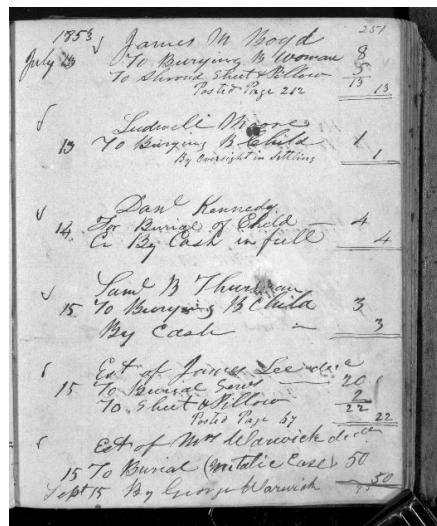 251
1853 James M Boyd
July 13 To Burying B Woman 8
To Shroud Sheet & Pillow 5
Posted Page 212 13 13
Ludwell Moore
13 To Burying B Child 1
By Oversight in Settling 1
Danl Kennedy
14 For Burial of Child 4
Cr By Cash in full 4
Saml B Thurman
15 To Burying B Child 3
By Cash 3
Est of James Lee decd
15 To Burial Serws 20
To Sheet & Pillow 2
Posted Page 67 22 22
Est of Mrs Warwick decd
15 To Burial (Metalic Case) 50
Sept 15 By George Warwick 50